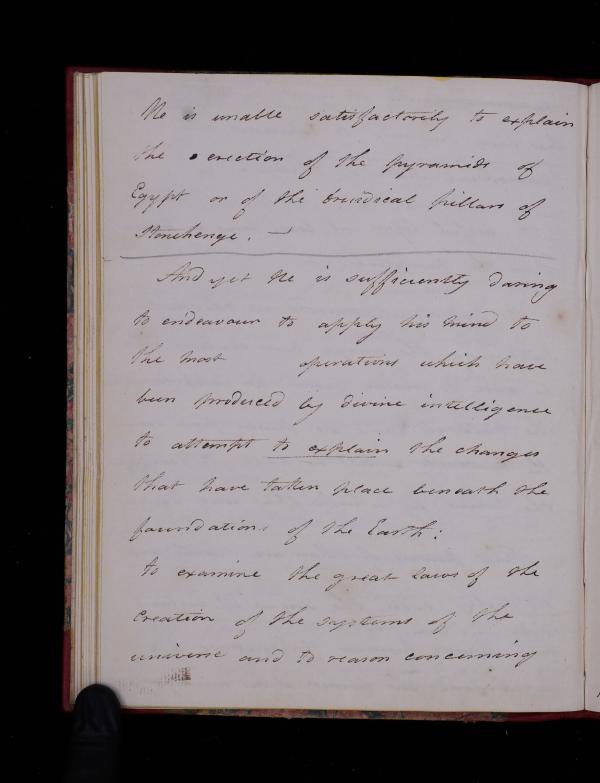 He is unable satisfactorily to explain
the erection of the pyramids of
Egypt or of the druidical pillars of
Stonehenge. —
And yet he is sufficiently daring
to endeavour to apply his mind to
the most operations which have
been produced by divine intelligence
to attempt to explain the changes
that have taken place beneath the
foundations of the Earth:
to examine the great laws of the
Creation of the systems of the
universe and to reason concerning